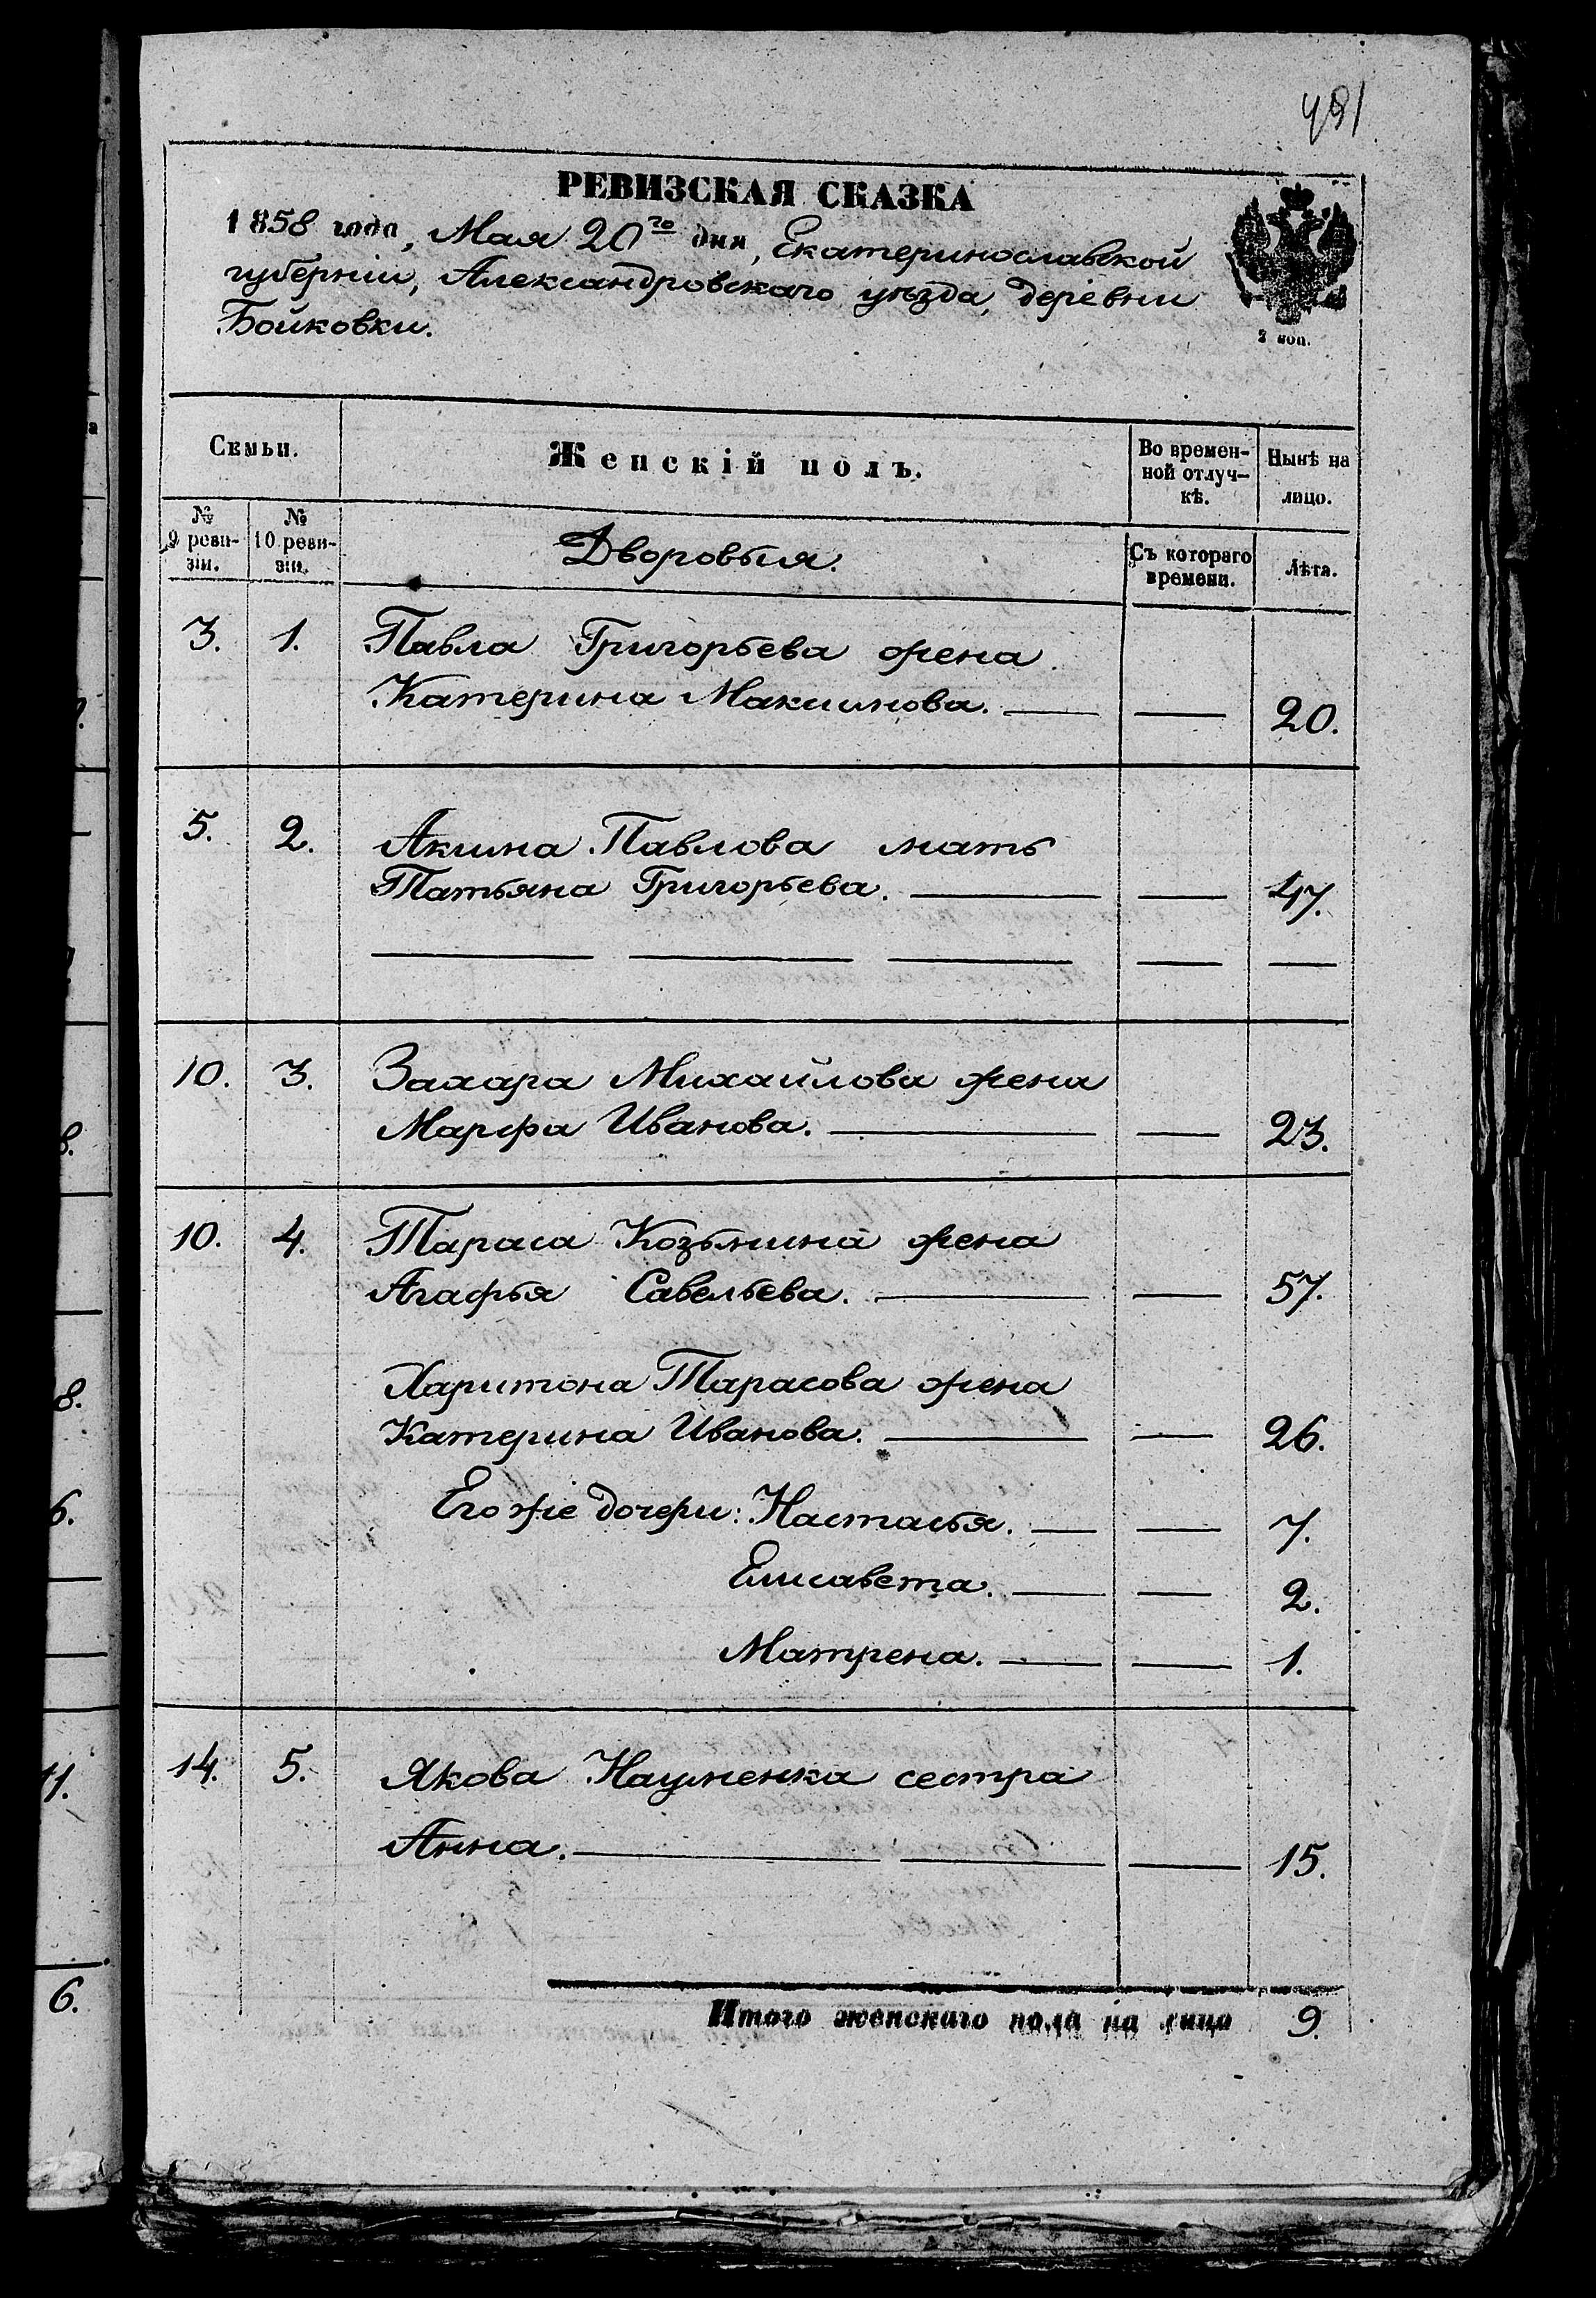 491
РЕВИЗСКАЯ СКАЗКА
1858 года, Мая 20го дня, Екатеринославской
губерніи, Александровскаго уѣзда, деревни
Бойковки.
2 коп.
Семьи.
Женскій полъ.
Во времен-
ной отлуч-
кѣ.
Нынѣ на
лицо.
№
9 реви-
зіи.
№
10 реви-
зіи.
Дворовыя.
Съ котораго
времени.
Лѣта.
3. 1. Павла Григорьева жена
Катерина Максимова. 20.
5. 2. Акима Павлова мать
Татьяна Григорьева. 47.
10. 3. Захара Михайлова жена
Марфа Иванова. 23.
10. 4. Тараса Козьмина жена
Агафья Савельева. 57.
Харитона Тарасова жена
Катерина Иванова. 26.
Его же дочери: Настасья. 7.
Елисавета. 2.
Матрена. 1.
14. 5. Якова Науменка сестра
Анна. 15.
Итого женскаго пола на лицо 9.
8.
6.
11.
6.